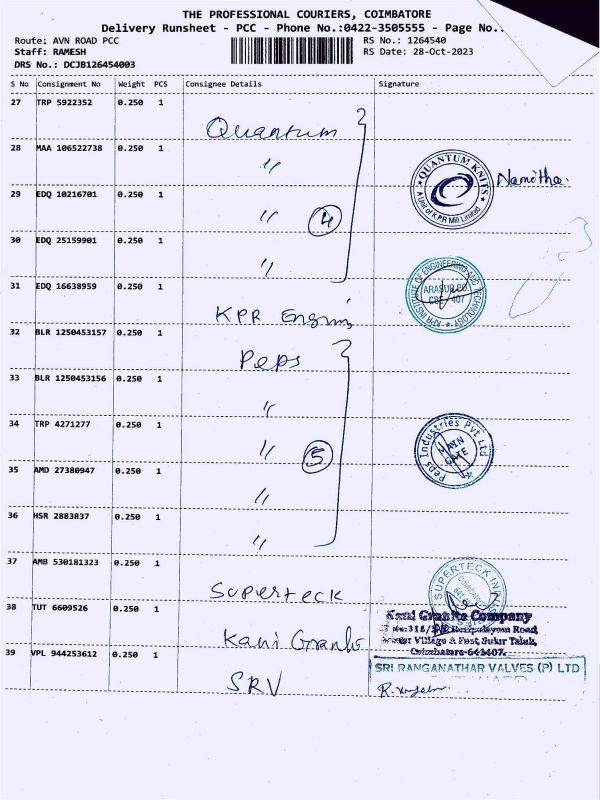 THE PROFESSIONAL COURIERS, COIMBATORE
Delivery Runsheet - PCC - Phone No.:0422-3505555 - Page No.:
Route: AVN ROAD PCC
RS No.: 1264540
Staff: RAMESH
RS Date: 28-Oct-2023
DRS No.: DCJB126454003
S No Consignment No Weight PCS Consignee Details Signature
27 TRP 5922352 0.250 1
Quantum
28 MAA 106522738 0.250 1
"
QUANTUM KNITS
A Unit of KPR Mill Limited
Namitha.
29 EDQ 10216701 0.250 1
"
4
30 EDQ 25159901 0.250 1
"
31 EDQ 16638959 0.250 1
KPR Engin
KPR INSTITUTE OF ENGINEERING AND TECHNOLOGY
ARASUR PO
CBE - 407
32 BLR 1250453157 0.250 1
Peps
33 BLR 1250453156 0.250 1
"
34 TRP 4271277 0.250 1
"
5
Peps Industries Pvt Ltd
MAIN
GATE
35 AMD 27380947 0.250 1
"
36 HSR 2883837 0.250 1
"
37 AMB 530181323 0.250 1
Superteck
SUPERTECK
38 TUT 6609526 0.250 1
Kani Granite
Kani Granite Company
Road,
Village & Post, Sulur Taluk,
Coimbatore-641407.
39 VPL 944253612 0.250 1
SRV
SRI RANGANATHAR VALVES (P) LTD